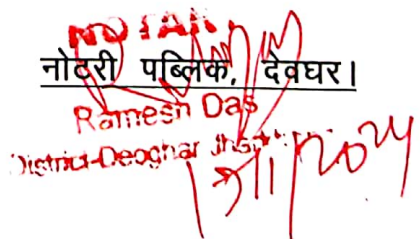 NOTARY
नोटरी पब्लिक, देवघर।
Ramesh Das
District-Deoghar